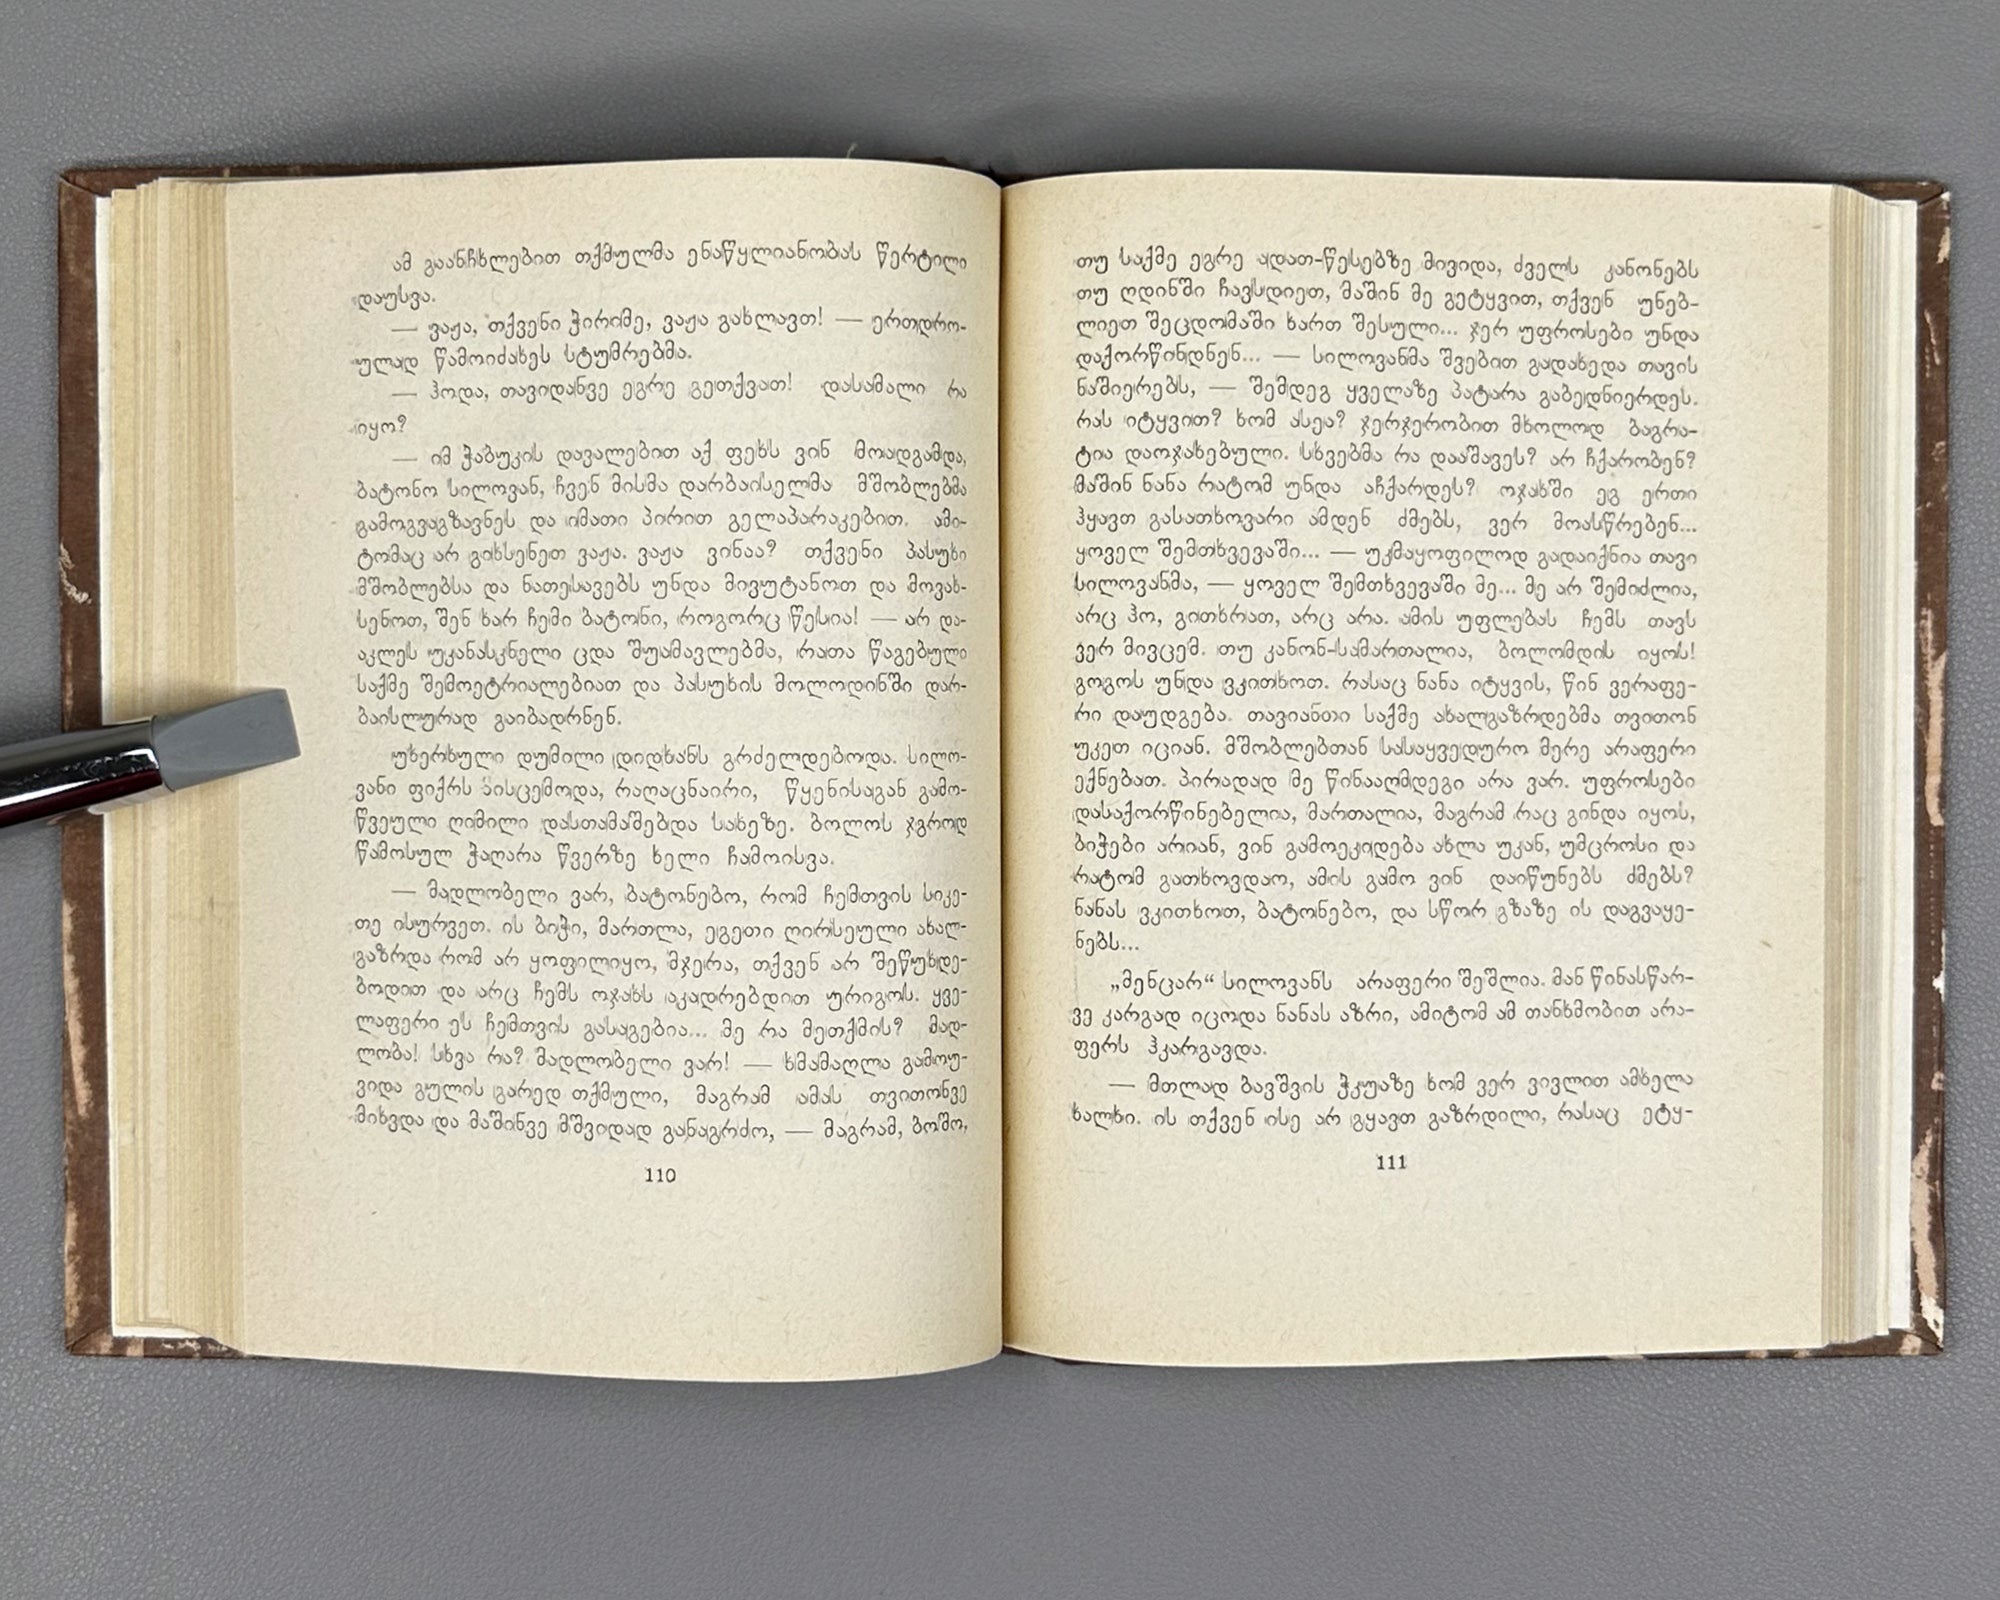 ამ გაანჩხლებით თქმულმა ენაწყლიანობას წერტილი
დაუსვა.
— ვაჟა, თქვენი ჭირიმე, ვაჟა გახლავთ! — ერთდრო-
ულად წამოიძახეს სტუმრებმა.
— ჰოდა, თავიდანვე ეგრე გეთქვათ! დასამალი რა
იყო?
— იმ ჭაბუკის დავალებით აქ ფეხს ვინ მოადგამდა,
ბატონო სილოვან, ჩვენ მისმა დარბაისელმა მშობლებმა
გამოგვაგზავნეს და იმათი პირით გელაპარაკებით. ამი-
ტომაც არ გიხსენეთ ვაჟა. ვაჟა ვინაა? თქვენი პასუხი
მშობლებსა და ნათესავებს უნდა მივუტანოთ და მოვახ-
სენოთ, შენ ხარ ჩემი ბატონი, როგორც წესია! — არ და-
აკლეს უკანასკნელი ცდა შუამავლებმა, რათა წაგებული
საქმე შემოეტრიალებიათ და პასუხის მოლოდინში დარ-
ბაისლურად გაიბადრნენ.
უხერხული დუმილი დიდხანს გრძელდებოდა. სილო-
ვანი ფიქრს მისცემოდა, რაღაცნაირი, წყენისაგან გამო-
წვეული ღიმილი დასთამაშებდა სახეზე. ბოლოს ჯგროდ
წამოსულ ჭაღარა წვერზე ხელი ჩამოისვა.
— მადლობელი ვარ, ბატონებო, რომ ჩემთვის სიკე-
თე ისურვეთ. ის ბიჭი, მართლა, ეგეთი ღირსეული ახალ-
გაზრდა რომ არ ყოფილიყო, მჯერა, თქვენ არ შეწუხდე-
ბოდით და არც ჩემს ოჯახს აკადრებდით ურიგოს. ყვე-
ლაფერი ეს ჩემთვის გასაგებია... მე რა მეთქმის? მად-
ლობა! სხვა რა? მადლობელი ვარ! — ხმამაღლა გამოუ-
ვიდა გულის გარედ თქმული, მაგრამ ამას თვითონვე
მიხვდა და მაშინვე მშვიდად განაგრძო, — მაგრამ, ბოშო,
110
თუ საქმე ეგრე ადათ-წესებზე მივიდა, ძველს კანონებს
თუ ღდინში ჩავსდიეთ, მაშინ მე გეტყვით, თქვენ უნებ-
ლიეთ შეცდომაში ხართ შესული... ჯერ უფროსები უნდა
დაქორწინდნენ... — სილოვანმა შვებით გადახედა თავის
ნაშიერებს, — შემდეგ ყველაზე პატარა გაბედნიერდეს.
რას იტყვით? ხომ ასეა? ჯერჯერობით მხოლოდ ბაგრა-
ტია დაოჯახებული. სხვებმა რა დააშავეს? არ ჩქარობენ?
მაშინ ნანა რატომ უნდა აჩქარდეს? ოჯახში ეგ ერთი
ჰყავთ გასათხოვარი ამდენ ძმებს, ვერ მოასწრებენ...
ყოველ შემთხვევაში... — უკმაყოფილოდ გადაიქნია თავი
სილოვანმა, — ყოველ შემთხვევაში მე... მე არ შემიძლია,
არც ჰო, გითხრათ, არც არა. ამის უფლებას ჩემს თავს
ვერ მივცემ. თუ კანონ-სამართალია, ბოლომდის იყოს!
გოგოს უნდა ვკითხოთ. რასაც ნანა იტყვის, წინ ვერაფე-
რი დაუდგება. თავიანთი საქმე ახალგაზრდებმა თვითონ
უკეთ იციან. მშობლებთან სასაყვედურო მერე არაფერი
ექნებათ. პირადად მე წინააღმდეგი არა ვარ. უფროსები
დასაქორწინებელია, მართალია, მაგრამ რაც გინდა იყოს,
ბიჭები არიან, ვინ გამოეკიდება ახლა უკან, უმცროსი და
რატომ გათხოვდაო, ამის გამო ვინ დაიწუნებს ძმებს?
ნანას ვკითხოთ, ბატონებო, და სწორ გზაზე ის დაგვაყე-
ნებს...
„მენცარ“ სილოვანს არაფერი შეშლია. მან წინასწარ-
ვე კარგად იცოდა ნანას აზრი, ამიტომ ამ თანხმობით არა-
ფერს ჰკარგავდა.
— მთლად ბავშვის ჭკუაზე ხომ ვერ ვივლით ამხელა
ხალხი. ის თქვენ ისე არ გყავთ გაზრდილი, რასაც ეტყ-
111